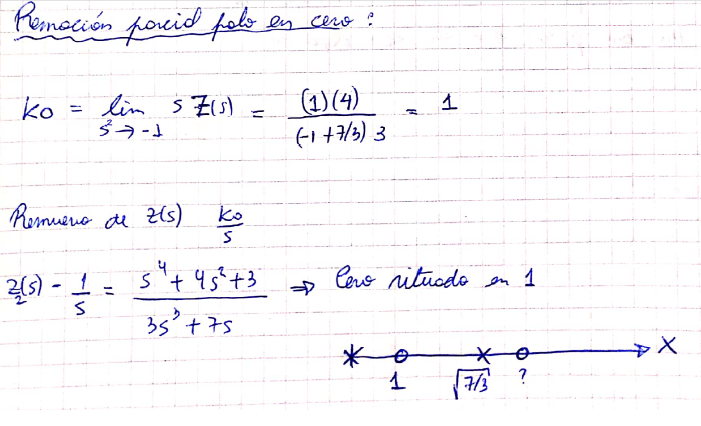 Remoción parcial polo en cero :
ko = lim s²→-1 s Z(s) = (1)(4) / (-1 + 7/3) 3 = 1
Remuevo de Z(s) ko/s
Z₂(s) - 1/s = s⁴ + 4s² + 3 / 3s³ + 7s ⇒ Cero situado en 1
X
1 √7/3 ?